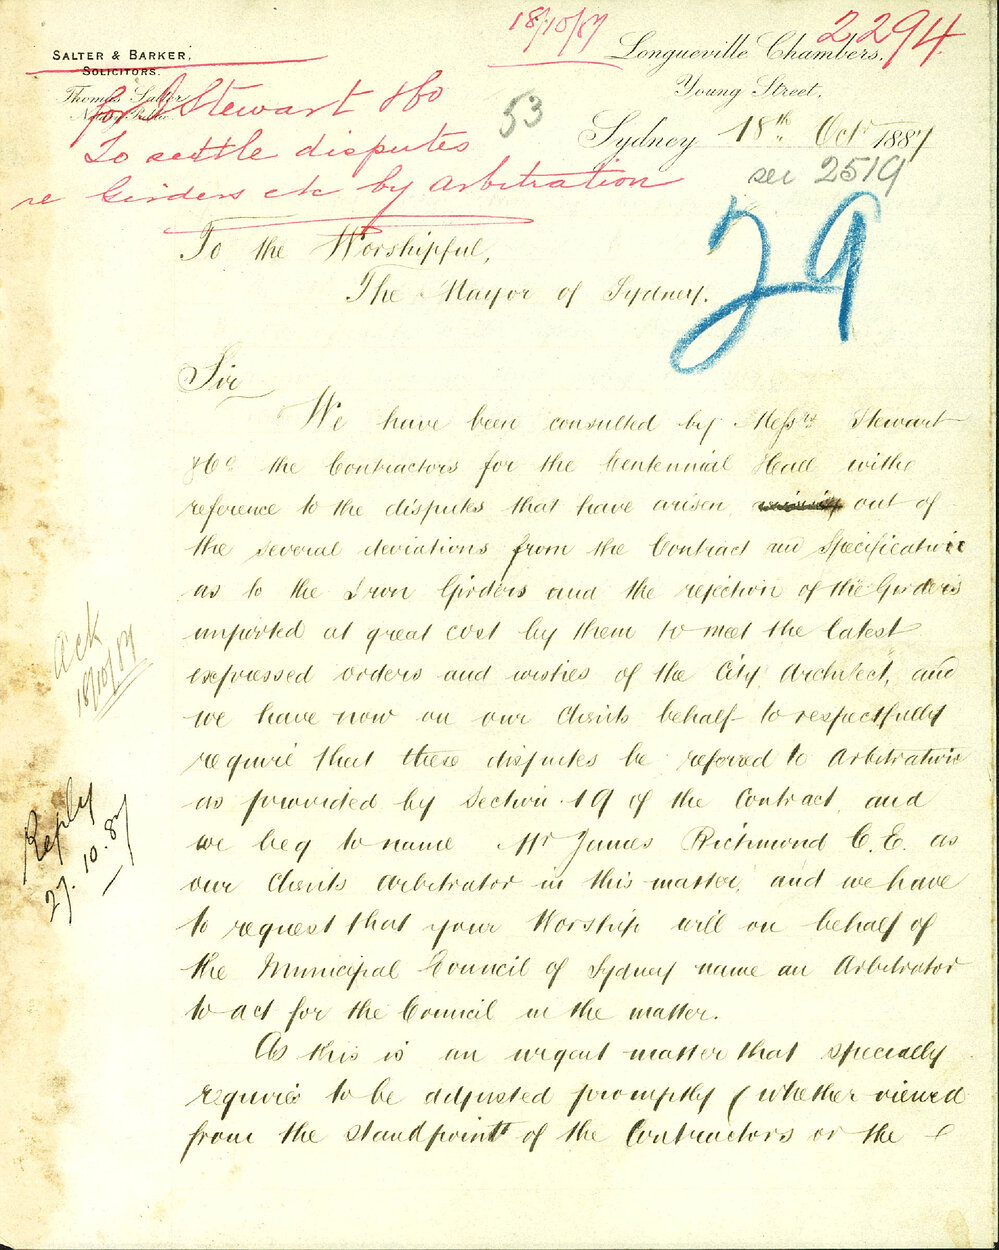 18/10/87
2294
SALTER & BARKER,
SOLICITORS.
Thomas Salter
Notary Public
Longueville Chambers,
Young Street,
for Stewart &Co
To settle disputes
re Girders etc by Arbitration
53
Sydney 18th Oct 1887
see 2519
29
To the Worshipful,
The Mayor of Sydney.
Sir
We have been consulted by Messrs Stewart
&Co the Contractors for the Centennial Hall with
reference to the disputes that have arisen out of
the several deviations from the Contract and Specification
as to the Iron Girders and the rejection of the Girders
imported at great cost by them to meet the latest
expressed orders and wishes of the City Architect, and
we have now on our Clients behalf to respectfully
require that these disputes be referred to Arbitration
as provided by Section 19 of the Contract and
we beg to name Mr James Richmond C.E. as
our Clients Arbitrator in this matter, and we have
to request that your Worship will on behalf of
the Municipal Council of Sydney name an Arbitrator
to act for the Council in the matter.
As this is an urgent matter that specially
requires to be adjusted promptly (whether viewed
from the standpoint of the Contractors or the
Ack
18/10/87
Reply
27.10.87